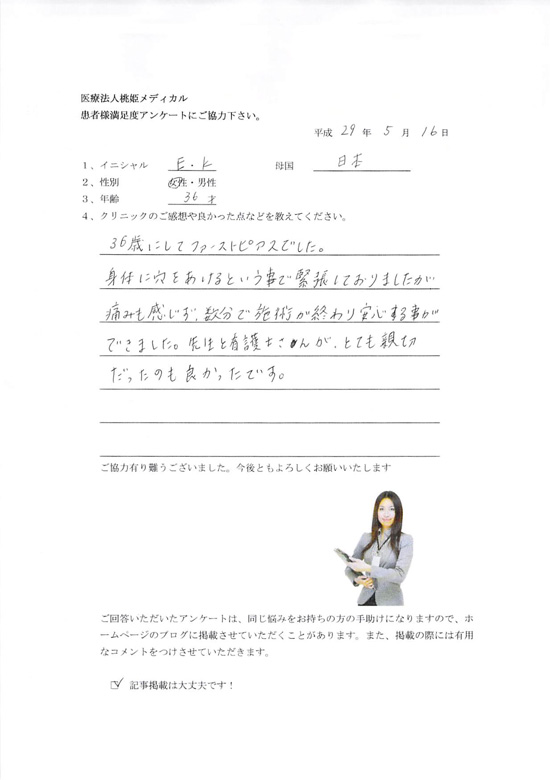 医療法人桃姫メディカル
患者様満足度アンケートにご協力下さい。
平成 29 年 5 月 16 日
1、イニシャル E.K 母国 日本
2、性別 女性・男性
3、年齢 36才
4、クリニックのご感想や良かった点などを教えてください。
36歳にしてファーストピアスでした。
身体に穴をあけるという事で緊張しておりましたが
痛みも感じず、数分で施術が終わり安心する事が
できました。先生と看護士さんが、とても親切
だったのも良かったです。
ご協力有り難うございました。今後ともよろしくお願いいたします
ご回答いただいたアンケートは、同じ悩みをお持ちの方の手助けになりますので、ホ
ームページのブログに掲載させていただくことがあります。また、掲載の際には有用
なコメントをつけさせていただきます。
☑ 記事掲載は大丈夫です！